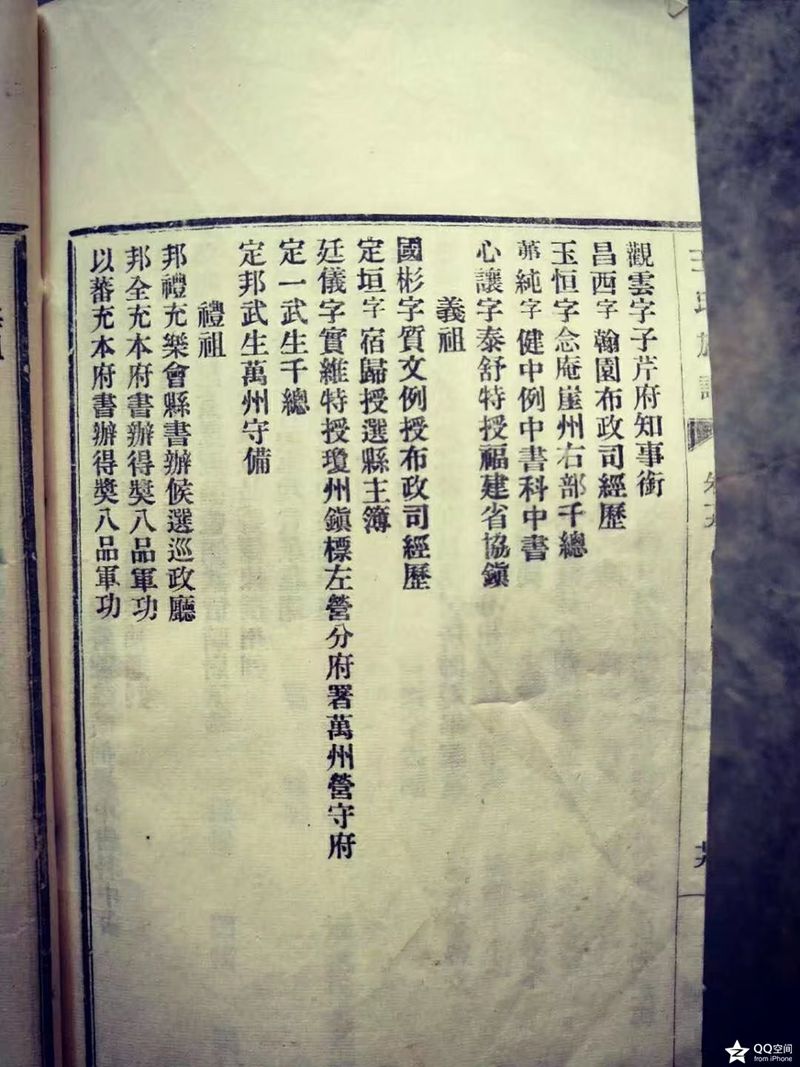 觀雲字子芹府知事銜
昌西字翰園布政司經歷
玉恒字念庵崖州右部千總
苐純字健中例中書科中書
心讓字泰舒特授福建省協鎮
義祖
國彬字質文例授布政司經歷
定垣字宿歸授選縣主簿
廷儀字實維特授瓊州鎭標左營分府署萬州營守府
定一武生千總
定邦武生萬州守備
禮祖
邦禮充樂會縣書辦候選巡政廳
邦全充本府書辦得獎八品軍功
以蕃充本府書辦得獎八品軍功
QQ空间
from iPhone